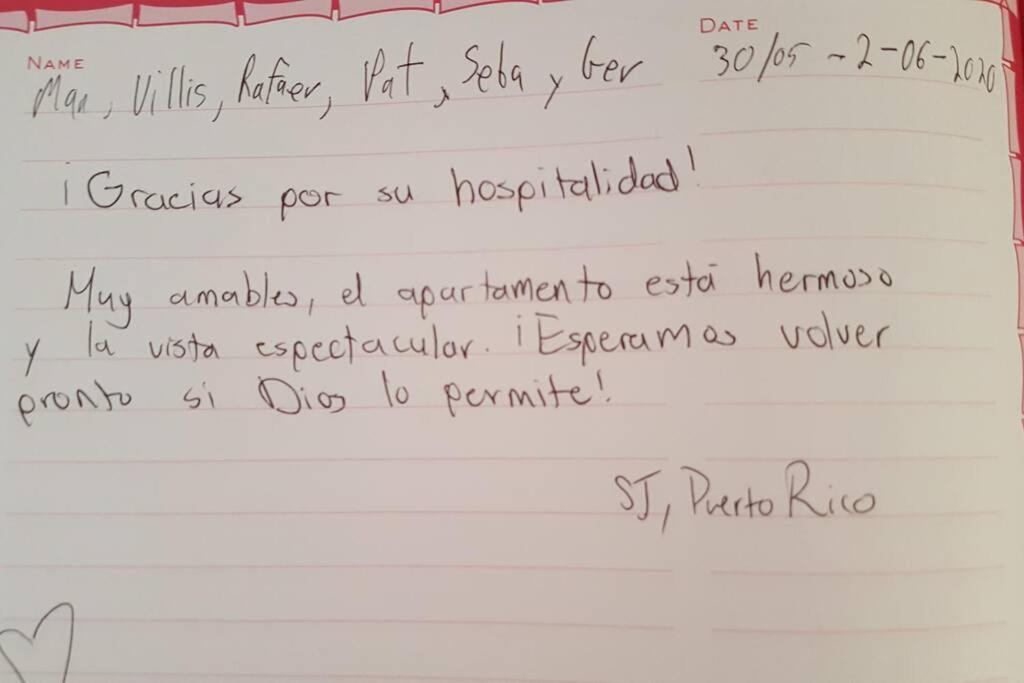 NAME
DATE
Man, Villis, Rafaer, Pat, Seba y Ger
30/05 - 2-06-2020
¡Gracias por su hospitalidad!
Muy amables, el apartamento está hermoso
y la vista espectacular. ¡Esperamos volver
pronto si Dios lo permite!
SJ, Puerto Rico